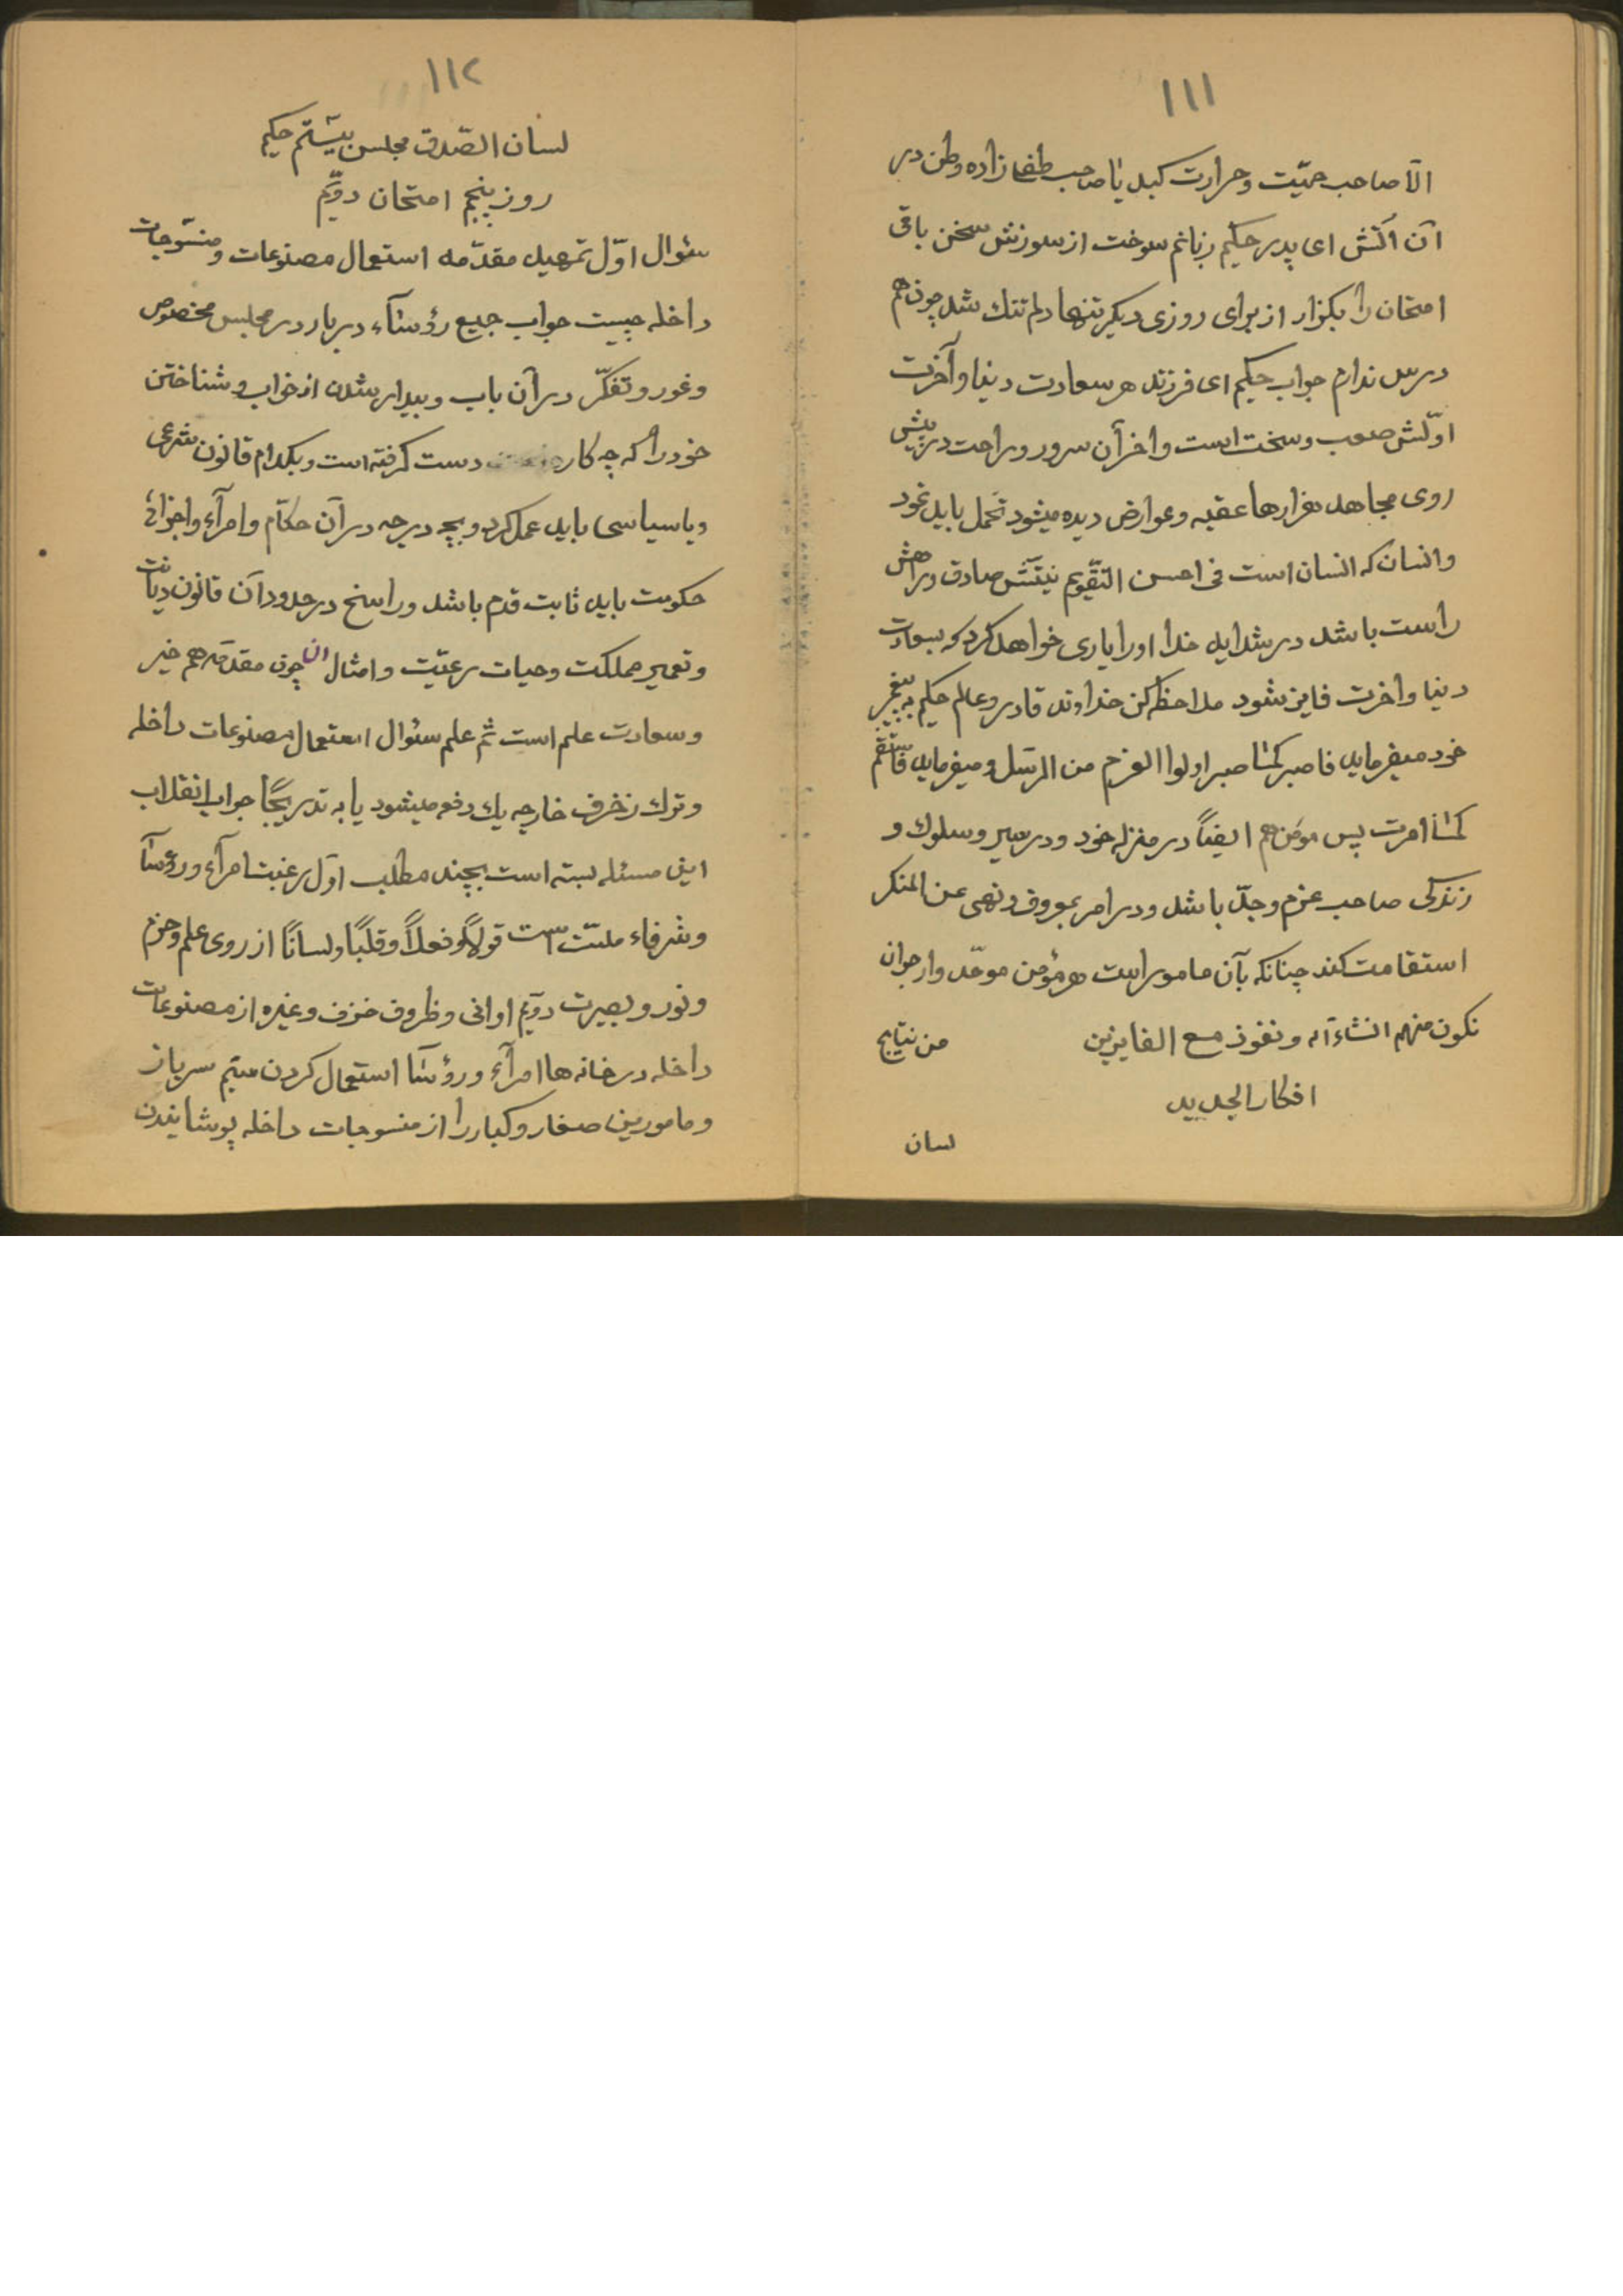 ۱۱۱
الا صاحب حمیّت و حرارت کبد یا صاحب طغی زاده وطن در
آن آتش ای پدر حکیم زبانم سوخت از سوزش سخن باقی
امتحان را بگزار از برای روزی دیگر تنها دلم تنك شد چون هم
درس ندارم جواب حکیم ای فرزند هر سعادت دنیا و آخرت
اوّلش صعب و سخت است و اخر آن سرور و راحت در پیش
روی مجاهد هزارها عقبه و عوارض دیده میشود تحمل باید نمود
و انسان که انسان است فی احسن التقّویم نیّتش صادق و راهش
راست باشد در شداید خدا او را یاری خواهد کرد که بسعادت
دنیا و اخرت فایز شود ملاحظه کن خداوند قادر و عالم حکیم به پیغمبر
خود میفرماید فاصبر کما صبر اولوا العزم من الرسل و میفرماید فاستقم
کما امرت پس مومن هم ایضاً در منزله خود و در سیر و سلوك و
زندکی صاحب عزم و جدّ باشد و در امر بمعروف و نهی عن المنکر
استقامت کند چنانکه بآن مامور است هر مؤمن موحّد وارجوان
نکون منهم انشاءالله و نفوذ مع الفایزین من نتایج
افکار الجدید
لسان
۱۱۲
لسان الصّدق مجلس بیستم حکیم
روز پنجم امتحان دویّم
سئوال اوّل تمهید مقدّمه استعمال مصنوعات و منسوجات
داخله چیست جواب جمیع رؤسآء دربار در مجلس مخصوص
و غور و تفکّر در آن باب و بیدار شدن از خواب و شناختن
خود را که چه کار دست کرفته است و بکدام قانون شرعی
و یا سیاسی باید عمل کرد و بچه درجه در آن حکاّم و امرآء و اجزائ
حکومت باید ثابت قدم باشد و راسخ در حدود آن قانون دیانت
و تعمیر مملکت و حیات رعیّت و امثال ان چون مقدّمه هم خیر
و سعادت علم است ثم علم سئوال استعمال مصنوعات داخله
و ترك زخرف خارجه یك دفعه میشود یا به تدریجاً جواب انقلاب
این مسئله بسته است بچند مطلب اوّل رغبت امرآء و رؤسآ
و شرفاء ملّت است قولاً و فعلاً و قلبًا و لسانًا از روی علم و حزم
و نور و بصیرت دویّم اوانی و ظروف خزف و غیره از مصنوعات
داخله در خانه ها امرآء و رؤسآ استعمال کردن سیّم سرباز
و مامورین صغار و کبار را از منسوجات داخله پوشانیدن